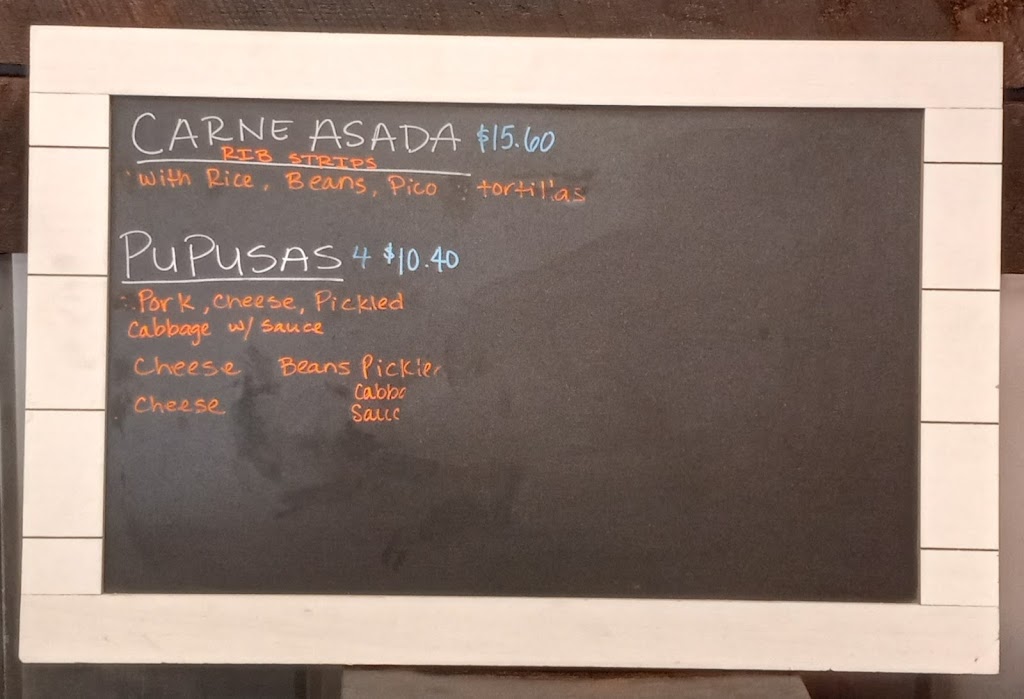 CARNE ASADA $15.60
RIB STRIPS
with Rice, Beans, Pico tortillas
PUPUSAS 4 $10.40
Pork, cheese, Pickled
Cabbage w/ sauce
Cheese Beans Pickle
Cabba
Cheese
Sauc